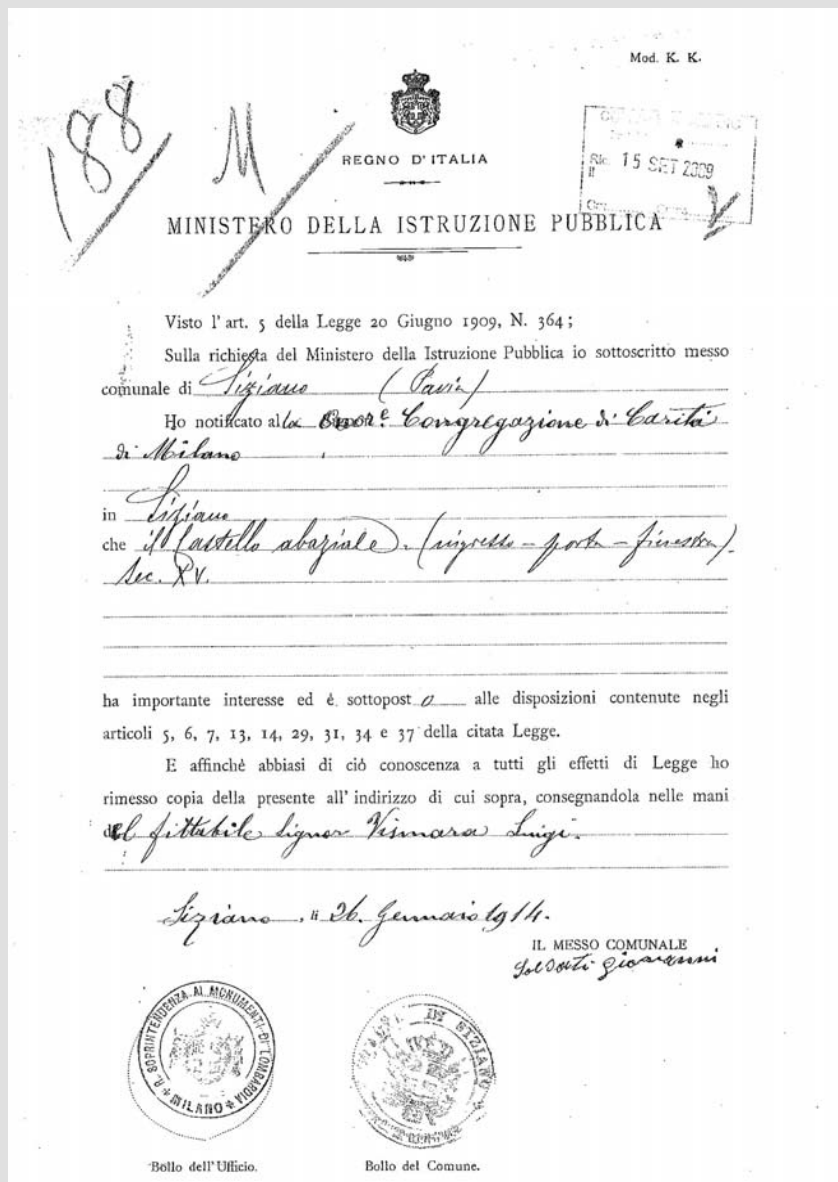 Mod. K. K.
188
M
REGNO D'ITALIA
Ric. 15 SET 2009
Il
MINISTERO DELLA ISTRUZIONE PUBBLICA
Visto l'art. 5 della Legge 20 Giugno 1909, N. 364;
Sulla richiesta del Ministero della Istruzione Pubblica io sottoscritto messo
comunale di Siziano (Pavia)
Ho notificato alla Congregazione di Carità
di Milano
in Siziano
che il Castello abaziale. (ingresso - porta - finestra).
Sec. XV.
ha importante interesse ed è sottoposto alle disposizioni contenute negli
articoli 5, 6, 7, 13, 14, 29, 31, 34 e 37 della citata Legge.
E affinchè abbiasi di ciò conoscenza a tutti gli effetti di Legge ho
rimesso copia della presente all'indirizzo di cui sopra, consegnandola nelle mani
del fittabile Signor Vismara Luigi.
Siziano, li 26. Gennaio 1914.
IL MESSO COMUNALE
Soldati Giovanni
R. SOPRINTENDENZA AI MONUMENTI DI LOMBARDIA
MILANO
DI SIZIANO
Bollo dell'Ufficio.
Bollo del Comune.